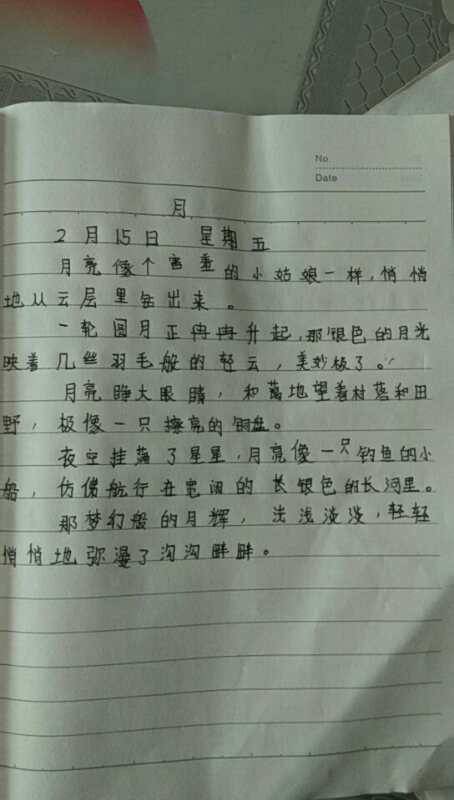 No
Date
月
2月15日 星期五
月亮像个害羞的小姑娘一样,悄悄
地从云层里钻出来。
一轮圆月正冉冉升起,那银色的月光
映着几丝羽毛般的轻云,美妙极了。
月亮睁大眼睛,和蔼地望着村落和田
野,极像一只擦亮的铜盘。
夜空挂满了星星,月亮像一只钓鱼的小
船,仿佛航行在宽阔的长银色的长河里。
那梦幻般的月辉,浅浅淡淡,轻轻
悄悄地弥漫了沟沟畔畔。